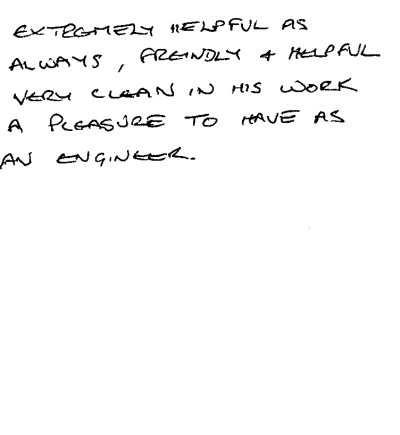 EXTREMELY HELPFUL AS
ALWAYS, FREINDLY + HELPFUL
VERY CLEAN IN HIS WORK
A PLEASURE TO HAVE AS
AN ENGINEER.